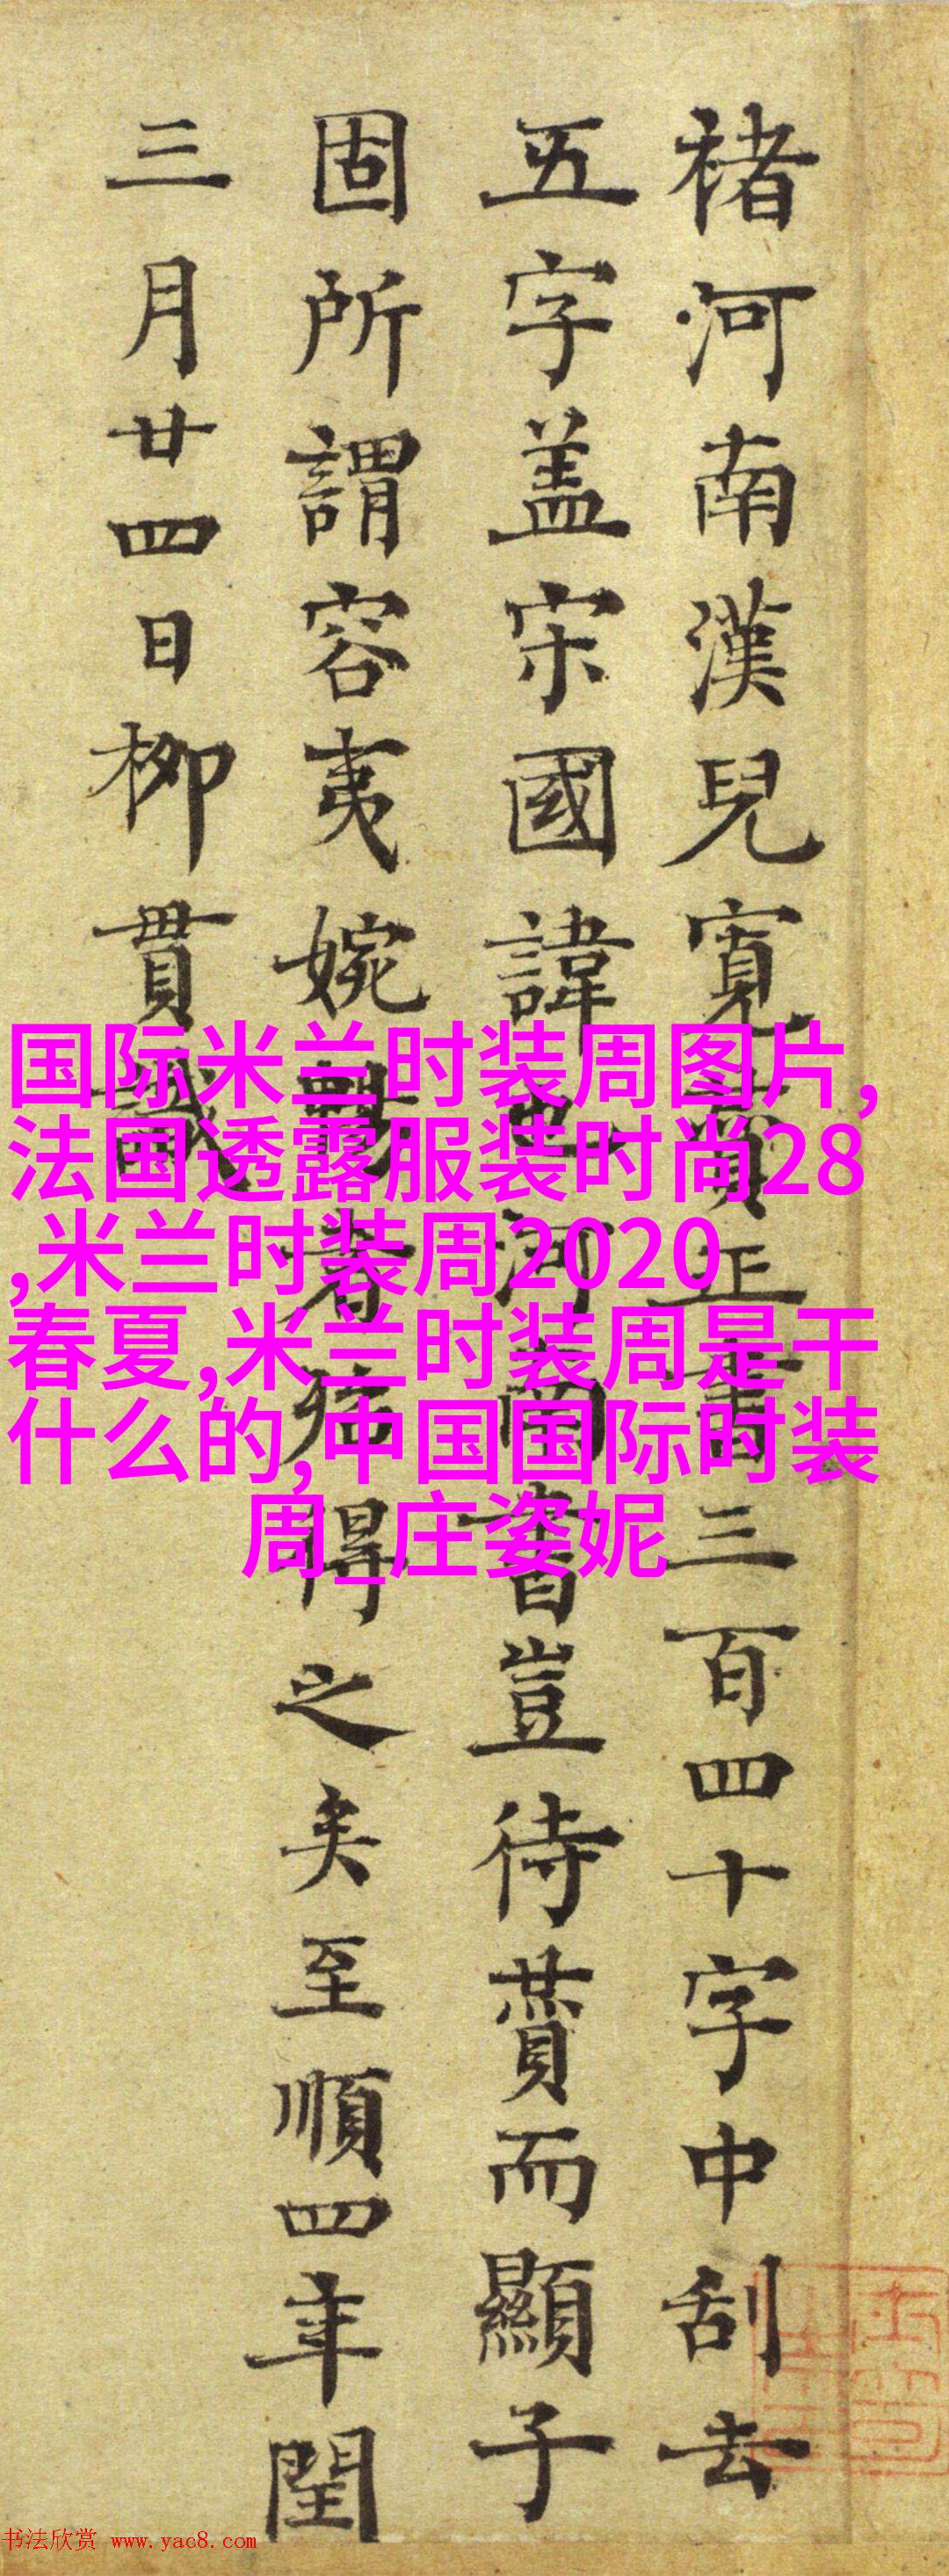 褚河南漢兒寬賛正書三百四十字中刮去
五字盖宋國諱也河南書豈待賛而顯子
固所謂容夷婉者殆得之矣至順四年閏
三月廿四日柳貫識
国际米兰时装周图片,
法国透露服装时尚28
,米兰时装周2020
春夏,米兰时装周是干
什么的,中国国际时装
周_庄姿妮
书法欣赏 www.yac8.com